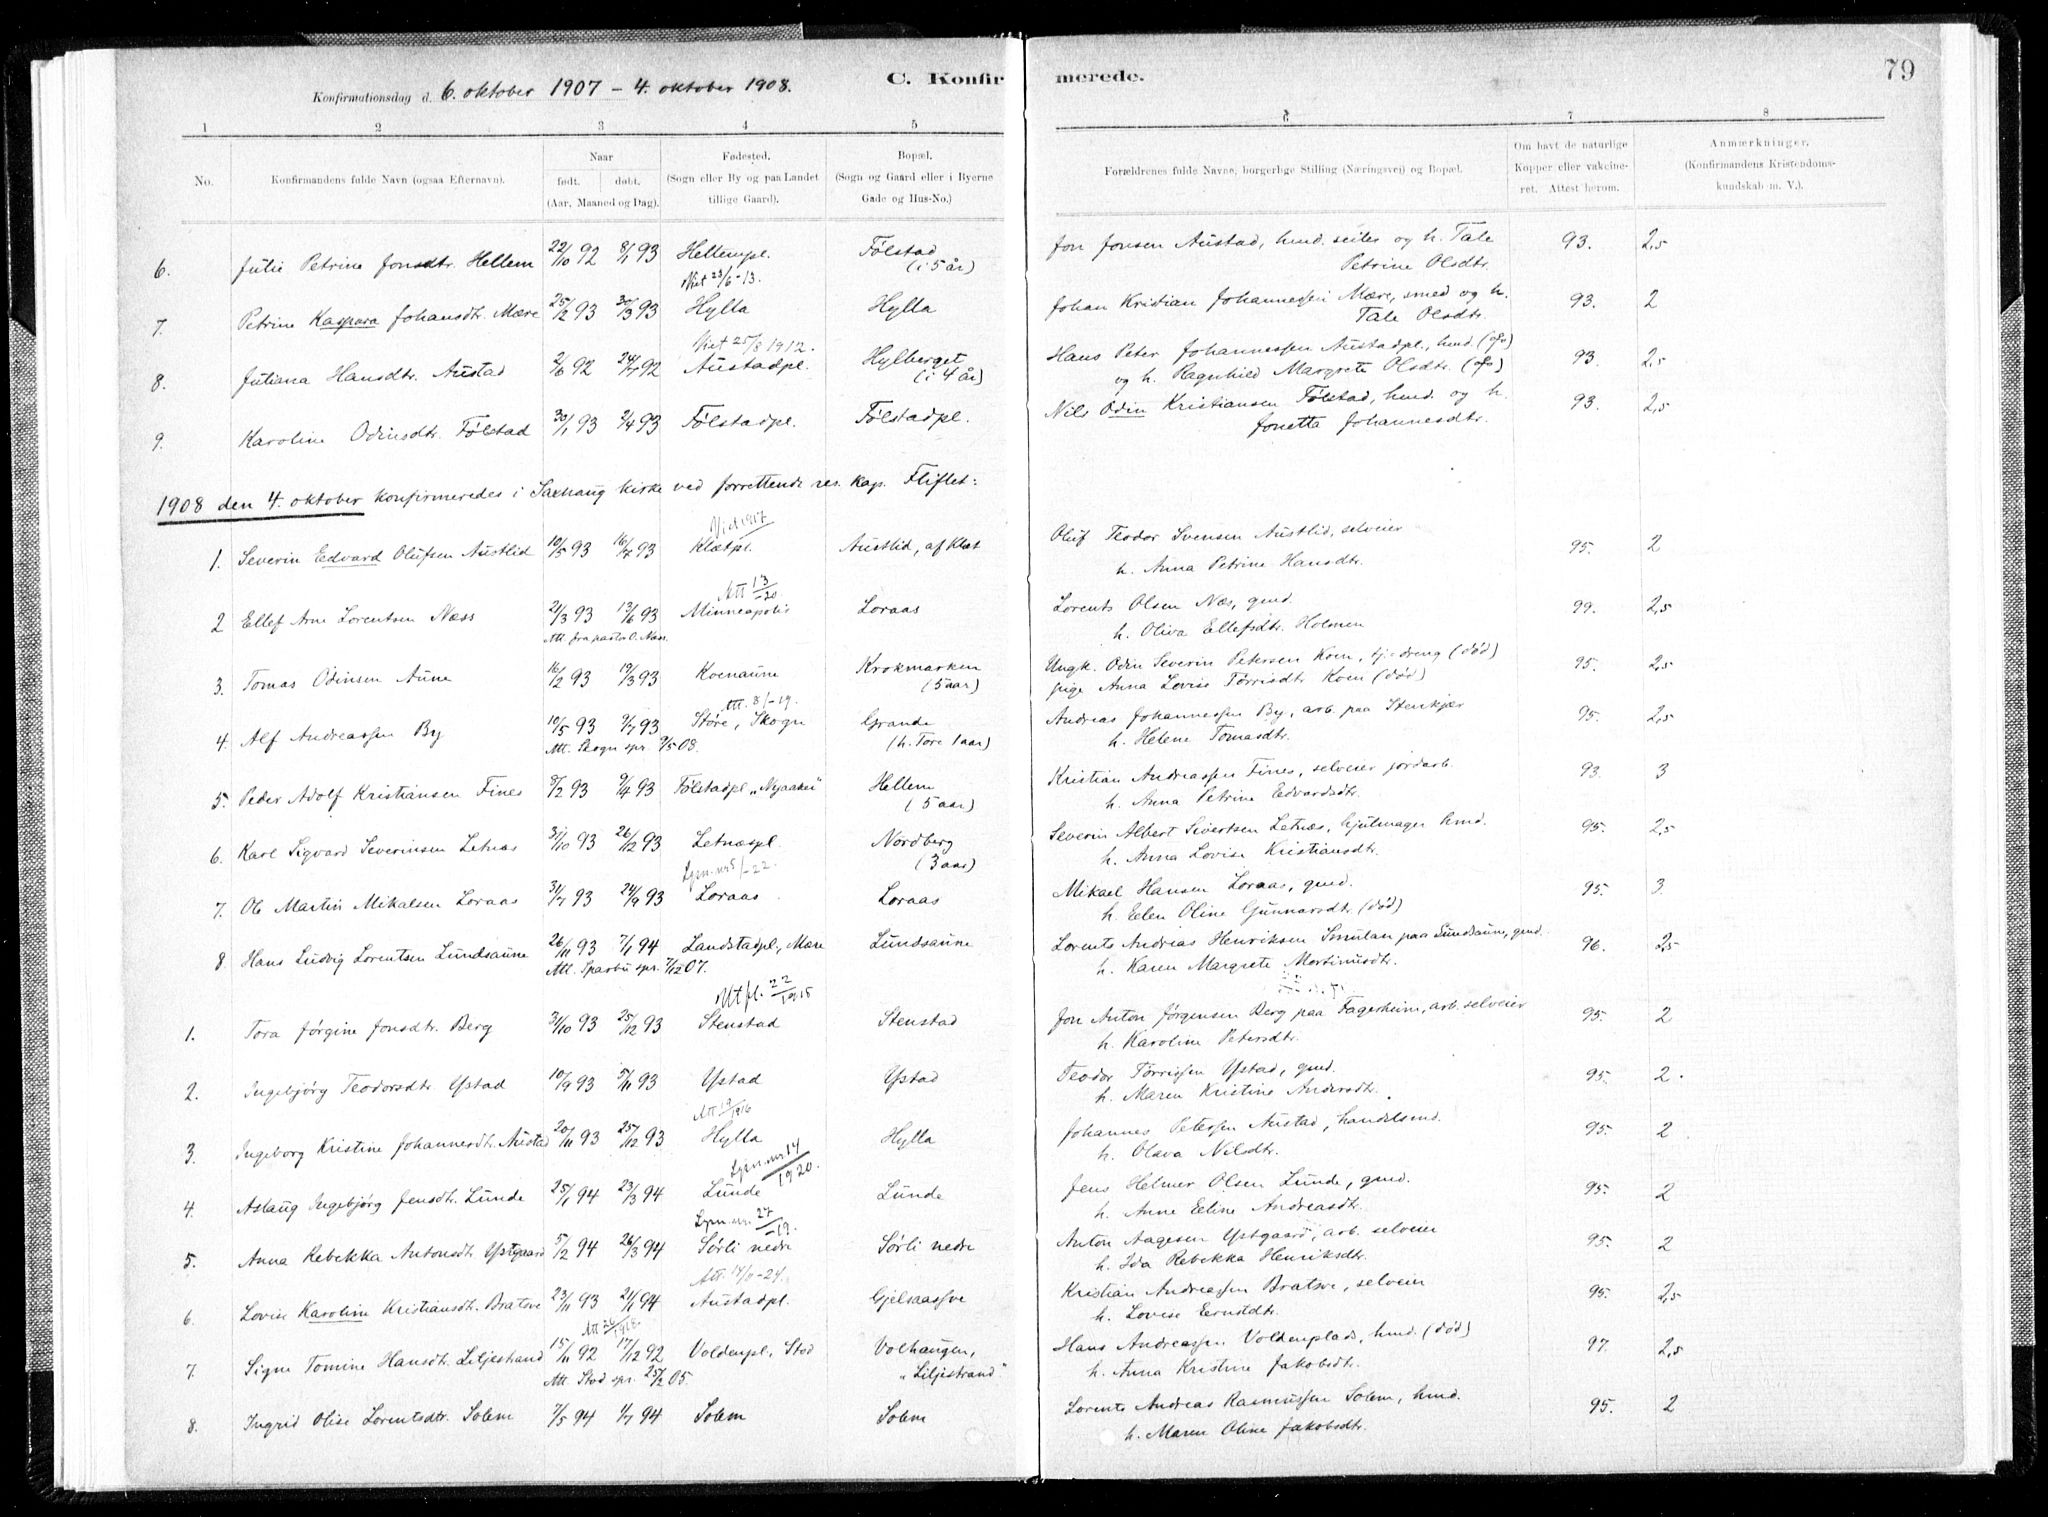 C. Konfirmerede.
79
Konfirmationsdag d. 6. oktober 1907 – 4. oktober 1908.
1 2 3 4 5 6 7 8
No. Konfirmandens fulde Navn (ogsaa Efternavn). Naar født. døbt. (Aar, Maaned og Dag). Fødested. (Sogn eller By og paa Landet tillige Gaard). Bopæl. (Sogn og Gaard eller i Byerne Gade og Hus-No.) Forældrenes fulde Navne, borgerlige Stilling (Næringsvei) og Bopæl. Om havt de naturlige Kopper eller vakcineret. Attest herom. Anmærkninger. (Konfirmandens Kristendomskundskab m. V.).
6. Julie Petrine Jonsdtr. Hellem 22/10 92 8/1 93 Hellempl. Følstad (i 5 år) Jon Jonsen Austad, hmd. seiler og h. Tale 93. 2,5
Petrine Olsdtr.
Viet 23/6-13.
7. Petrine Kaspara Johansdtr. Mære 25/2 93 30/3 93 Hylla Hylla Johan Kristian Johannessen Mære, smed og h. 93. 2
Tale Olsdtr.
Viet 25/8 1912.
8. Juliana Hansdtr. Austad 2/6 92 24/7 92 Austadpl. Hylberget (i 4 år) Hans Peter Johannessen Austadpl., hmd.
og h. Ragnhild Margrete Olsdtr. 93 2,5
9. Karoline Odinsdtr. Følstad 30/1 93 2/4 93 Følstadpl. Følstadpl. Nils Odin Kristiansen Følstad, hmd. og h. 93. 2,5
Jonetta Johannesdtr.
1908 den 4. oktober konfirmeredes i Saxhaug kirke ved forrettende res. kap. Fliflet:
Viet 1917
1. Severin Edvard Olufsen Austlid 10/5 93 16/7 93 Klætpl. Austlid, af Klæt Oluf Teodor Svensen Austlid, selveier 95. 2
h. Anna Petrine Hansdtr.
Att 13/-20
2 Ellef Arne Lorentsen Næss 21/3 93 13/6 93 Minneapolis Loraas Lorents Olsen Næs, gmd. 99. 2,5
Att. fra pastor O. Næss. h. Oliva Ellefsdtr. Holmen
3. Tomas Odinsen Aune 16/2 93 19/3 93 Koenaune Krokmarken (5 aar) Ungk. Odin Severin Petersen Koen, tj.dreng (død) 95. 2,5
pige Anna Lovise Torrisdtr Koen (død)
Att. 8/-19.
4. Alf Andreassen By 10/5 93 9/7 93 Støre, Skogn Grande (h. Tore 1 aar) Andreas Johannessen By, arb. paa Stenkjær 95. 2,5
Att. Skogn spr. 9/5 08. h. Helene Tomasdtr.
5. Peder Adolf Kristiansen Fines 8/2 93 9/4 93 Følstadpl Hellem (5 aar) Kristian Andreassen Fines, selveier jordarb. 93. 3
h. Anna Petrine Edvardsdtr.
6. Karl Sigvard Severinsen Letnes 31/10 93 26/12 93 Letnespl Nordberg (3 aar) Severin Albert Sivertsen Letnæs, hjulmager hmd. 95. 2,5
h. Anna Lovise Kristiansdtr.
Lysn. nr 5/-22.
7. Ole Martin Mikalsen Loraas 31/7 93 24/9 93 Loraas Loraas Mikael Hansen Loraas, gmd. 95. 3
h. Elen Oline Gunnarsdtr. (død)
8. Hans Ludvig Lorentsen Lundsaune 26/11 93 7/1 94 Landstadpl., Mære Lundsaune Lorents Andreas Henriksen Smulan paa Lundsaune, gmd. 96. 2,5
Att. Sparbu spr. 7/12 07. h. Karen Margrete Mortinusdtr.
Utfl. 22/1915
1. Tora Jørgine Jonsdtr. Berg 31/10 93 25/12 93 Stenstad Stenstad Jon Anton Jørgensen Berg paa Fagerheim, arb. selveier 95. 2
h. Karoline Petersdtr.
2. Ingebjörg Teodorsdtr Ystad 10/9 93 5/11 93 Ystad Ystad Teodor Torrissen Ystad, gmd. 95. 2.
h. Maren Kristine Andersdtr.
Att 19/1916
3. Ingeborg Kristine Johannesdtr. Austad 20/11 93 25/12 93 Hylla Hylla Johannes Petersen Austad, handlsmd. 95. 2
h. Olava Nilsdtr.
Lysn. nr. 14/1920.
4. Aslaug Ingebjörg Jensdtr. Lunde 25/1 94 23/3 94 Lunde Lunde Jens Helmer Olsen Lunde, gmd. 95. 2
h. Anne Eline Andreasdtr.
Lysn. nr. 27/-19.
5. Anna Rebekka Antonsdtr Ystgaard 5/2 94 26/3 94 Sørli nedre Sørli nedre Anton Aagesen Ystgaard, arb. selveier 95. 2
h. Ida Rebekka Henriksdtr.
6. Lovise Karoline Kristiansdtr. Bratsve 23/11 93 21/1 94 Austadpl. Gjelsaassve Kristian Andreassen Bratsve, selveier 95. 2,5
h. Lovise Ernstdtr.
Att 26/1918.
7. Signe Tomine Hansdtr. Liljestrand 15/11 92 17/12 92 Voldenpl., Stod Volhaugen, „Liljestrand" Hans Andreassen Voldenplads, hmd. (død) 97. 2,5
Att. Stod spr. 25/2 05. h. Anna Kristine Jakobsdtr.
8. Ingrid Olise Lorentsdtr. Solem 7/5 94 1/7 94 Solem Solem Lorents Andreas Rasmussen Solem, hmd. 95. 2
h. Maren Oline Jakobsdtr.